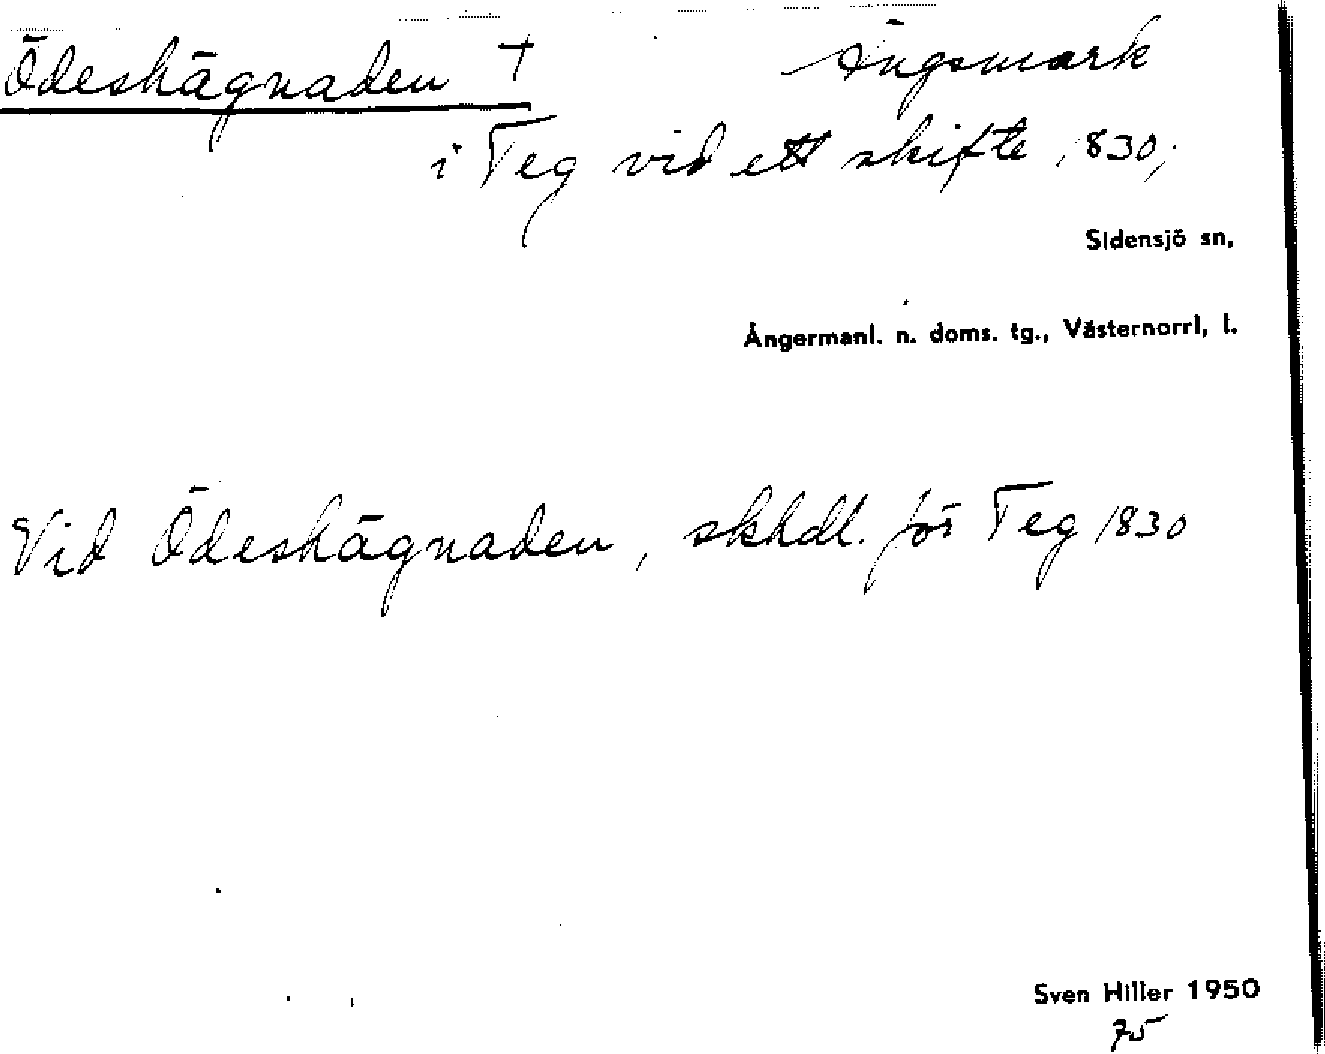 Ödeshägnaden † Ängsmark
i Teg vid ett skifte 1830,
Sidensjö sn,
Ångermanl. n. doms. tg., Västernorrl. l.
Vid Ödeshägnaden, skhdl. för Teg 1830
Sven Hiller 1950
75